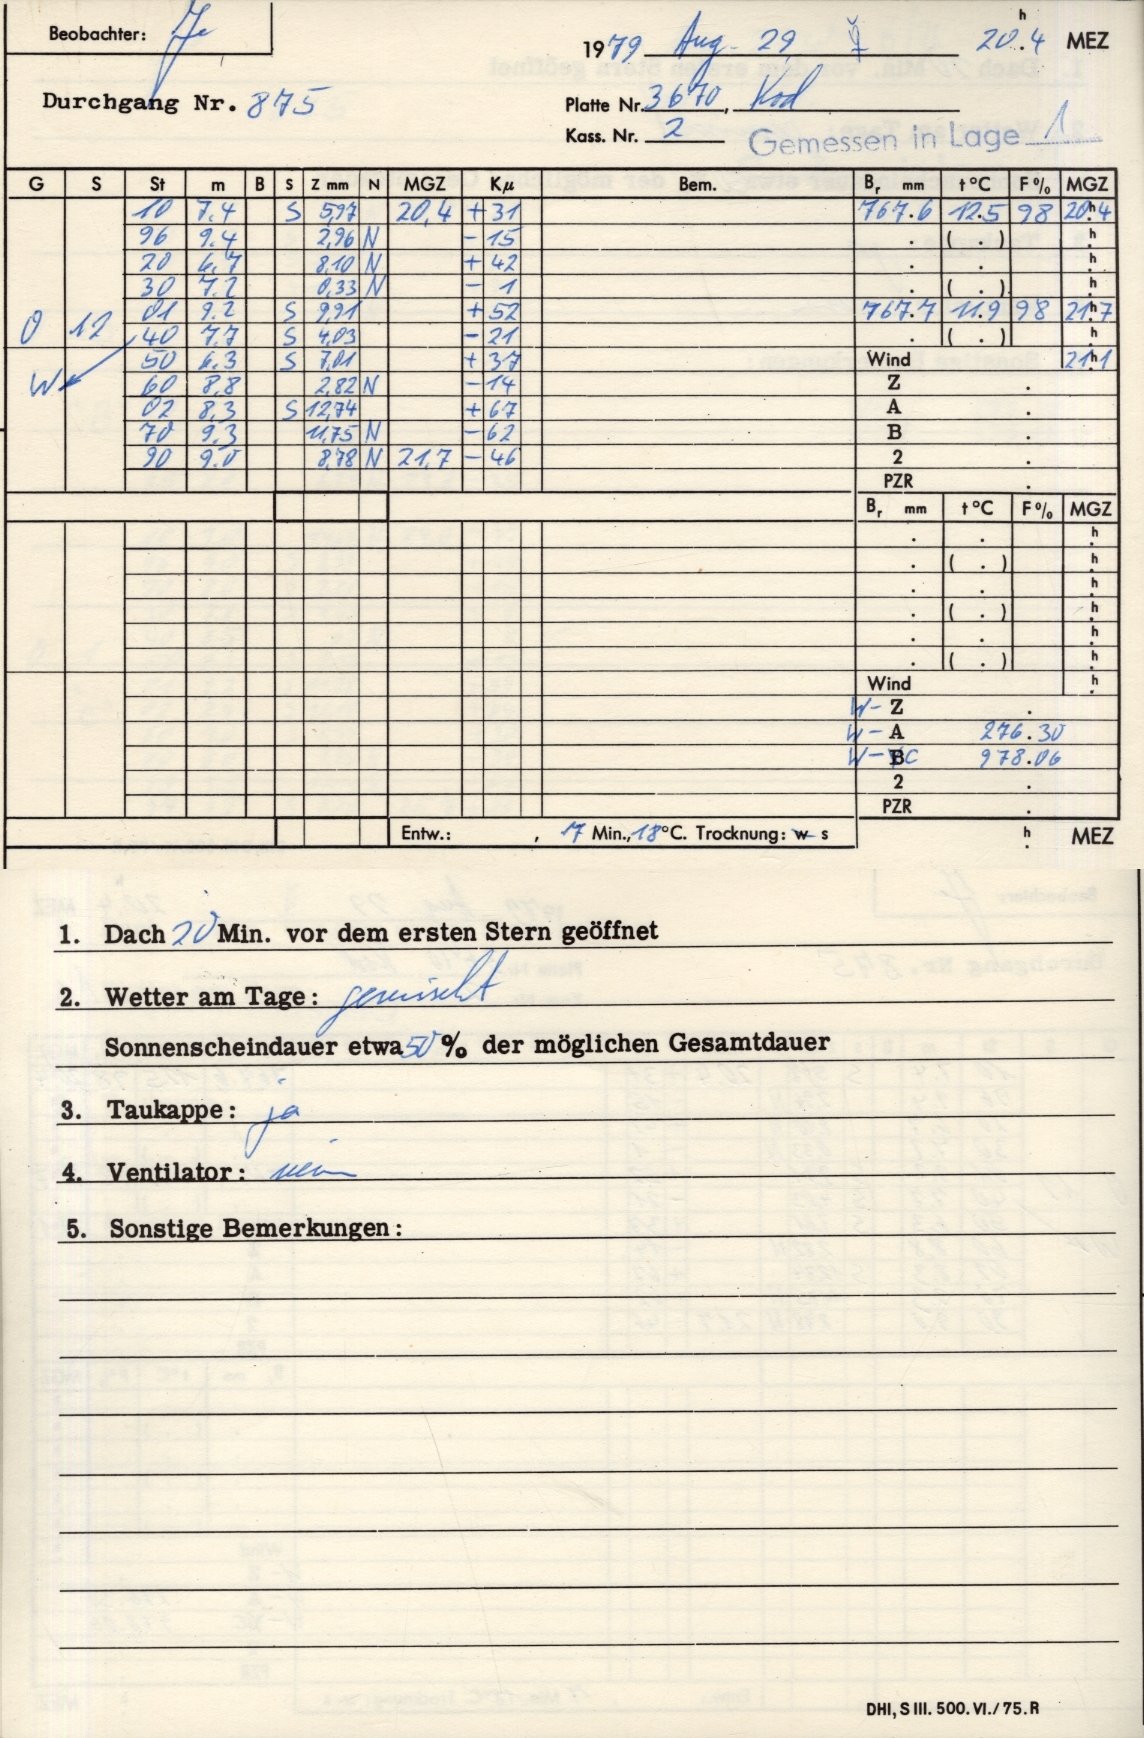 Beobachter: Je
1979 Aug. 29 ☿ 20.4 h MEZ
Durchgang Nr. 875
Platte Nr. 3670, Kod
Kass. Nr. 2 Gemessen in Lage 1
G S St m B S Z mm N MGZ Kμ Bem. Br mm t°C F% MGZ
10 7.4 S 5,97 20,4 +31 767.6 12.5 98 20h.4
96 9.4 2,96 N -15 . ( . ) h
20 6.7 8,10 N +42 . . h
30 7.2 0,33 N - 1 . ( . ) h
0 12 01 9.2 S 9,91 +52 767.7 11.9 98 21h.7
40 7.7 S 4,03 -21 . ( . ) h
W 50 6.3 S 7,01 +37 Wind 21h.1
60 8,8 2,82 N -14 Z .
02 8,3 S 12,74 +67 A .
70 9.3 11,75 N -62 B .
90 9.0 8,78 N 21,7 -46 2 .
PZR .
Br mm t°C F% MGZ
. . h
. ( . ) h
. . h
. ( . ) h
. . h
. ( . ) h
Wind h
W- Z .
W- A 276.30
W- C 978.06
2 .
PZR .
Entw.: , 17 Min., 18°C. Trocknung: w s h MEZ
1. Dach 20 Min. vor dem ersten Stern geöffnet
2. Wetter am Tage: gemischt
Sonnenscheindauer etwa 50 % der möglichen Gesamtdauer
3. Taukappe: ja
4. Ventilator: nein
5. Sonstige Bemerkungen:
DHI, S III. 500. VI./ 75. R